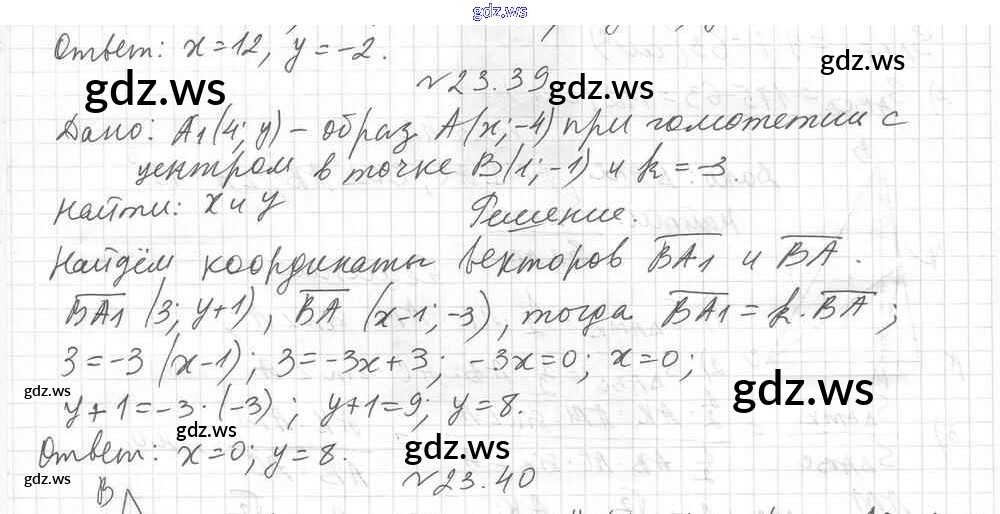 gdz.ws
Ответ: x=12, y=-2.
gdz.ws
№23.39
gdz.ws
gdz.ws
Дано: A1(4; y) – образ A(x; -4) при гомотетии с
центром в точке B(1; -1) и k = -3.
Найти: x и y
Решение.
Найдём координаты векторов BA1 и BA.
BA1 (3; y+1), BA (x-1; -3), тогда BA1 = k·BA;
3=-3(x-1); 3=-3x+3; -3x=0; x=0;
gdz.ws
gdz.ws
y+1=-3·(-3); y+1=9; y=8.
gdz.ws
Ответ: x=0; y=8.
gdz.ws
gdz.ws
№23.40
gdz.ws
B